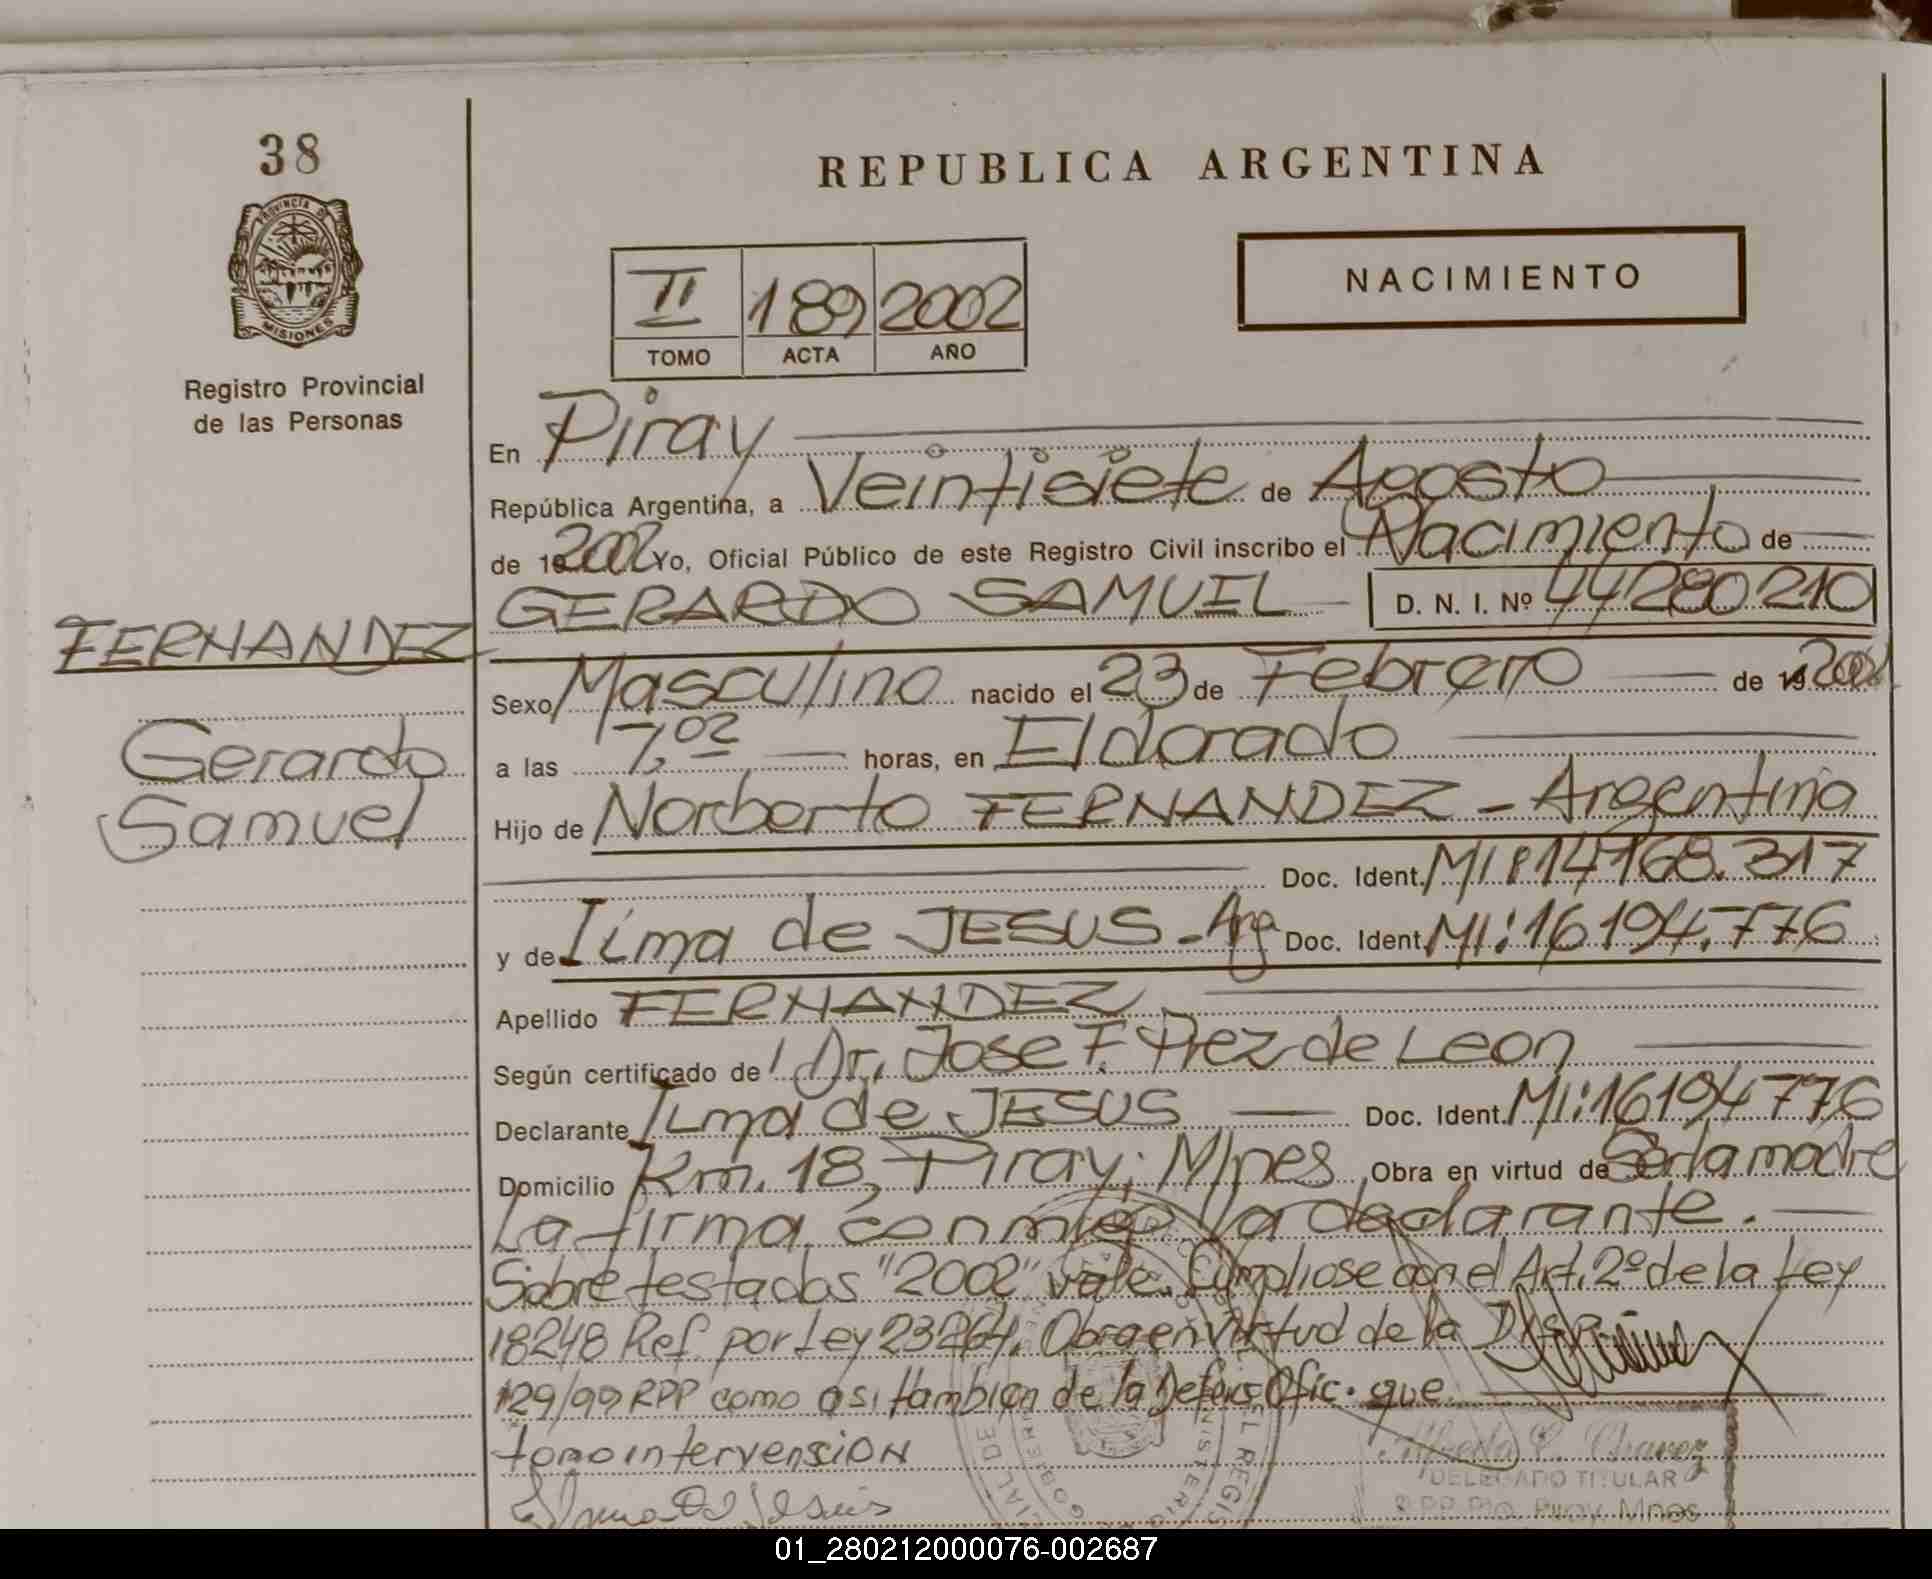 38
PROVINCIA DE
MISIONES
Registro Provincial
de las Personas
FERNANDEZ
Gerardo
Samuel
REPUBLICA ARGENTINA
NACIMIENTO
II 189 2002
TOMO ACTA AÑO
En Piray
República Argentina, a Veintisiete de Agosto
de 19 2002 Yo, Oficial Público de este Registro Civil inscribo el Nacimiento de
GERARDO SAMUEL D. N. I. Nº 44280210
Sexo Masculino nacido el 23 de Febrero de 19
a las horas, en Eldorado
Hijo de Norberto FERNANDEZ - Argentina
Doc. Ident. MI: 14768.317
y de Ilma de JESUS - Arg Doc. Ident. MI: 16194.776
Apellido FERNANDEZ
Según certificado de Dr. Jose F. de Leon
Declarante Ilma de JESUS Doc. Ident. MI: 16194776
Domicilio Km. 18, Piray, Mnes Obra en virtud de Ser la madre
La firma conmigo la declarante.
Sobre testados "2002" vale. Cumpliose con el Art. 2º de la Ley
18248 Ref. por Ley 23264. Obra en virtud de la
129/99 RPP como asi tambien de la Defens Ofic. que
tomo intervension
Ilma de Jesus
Chavez
DELEGADO TITULAR
Piray Mnes
01_280212000076-002687